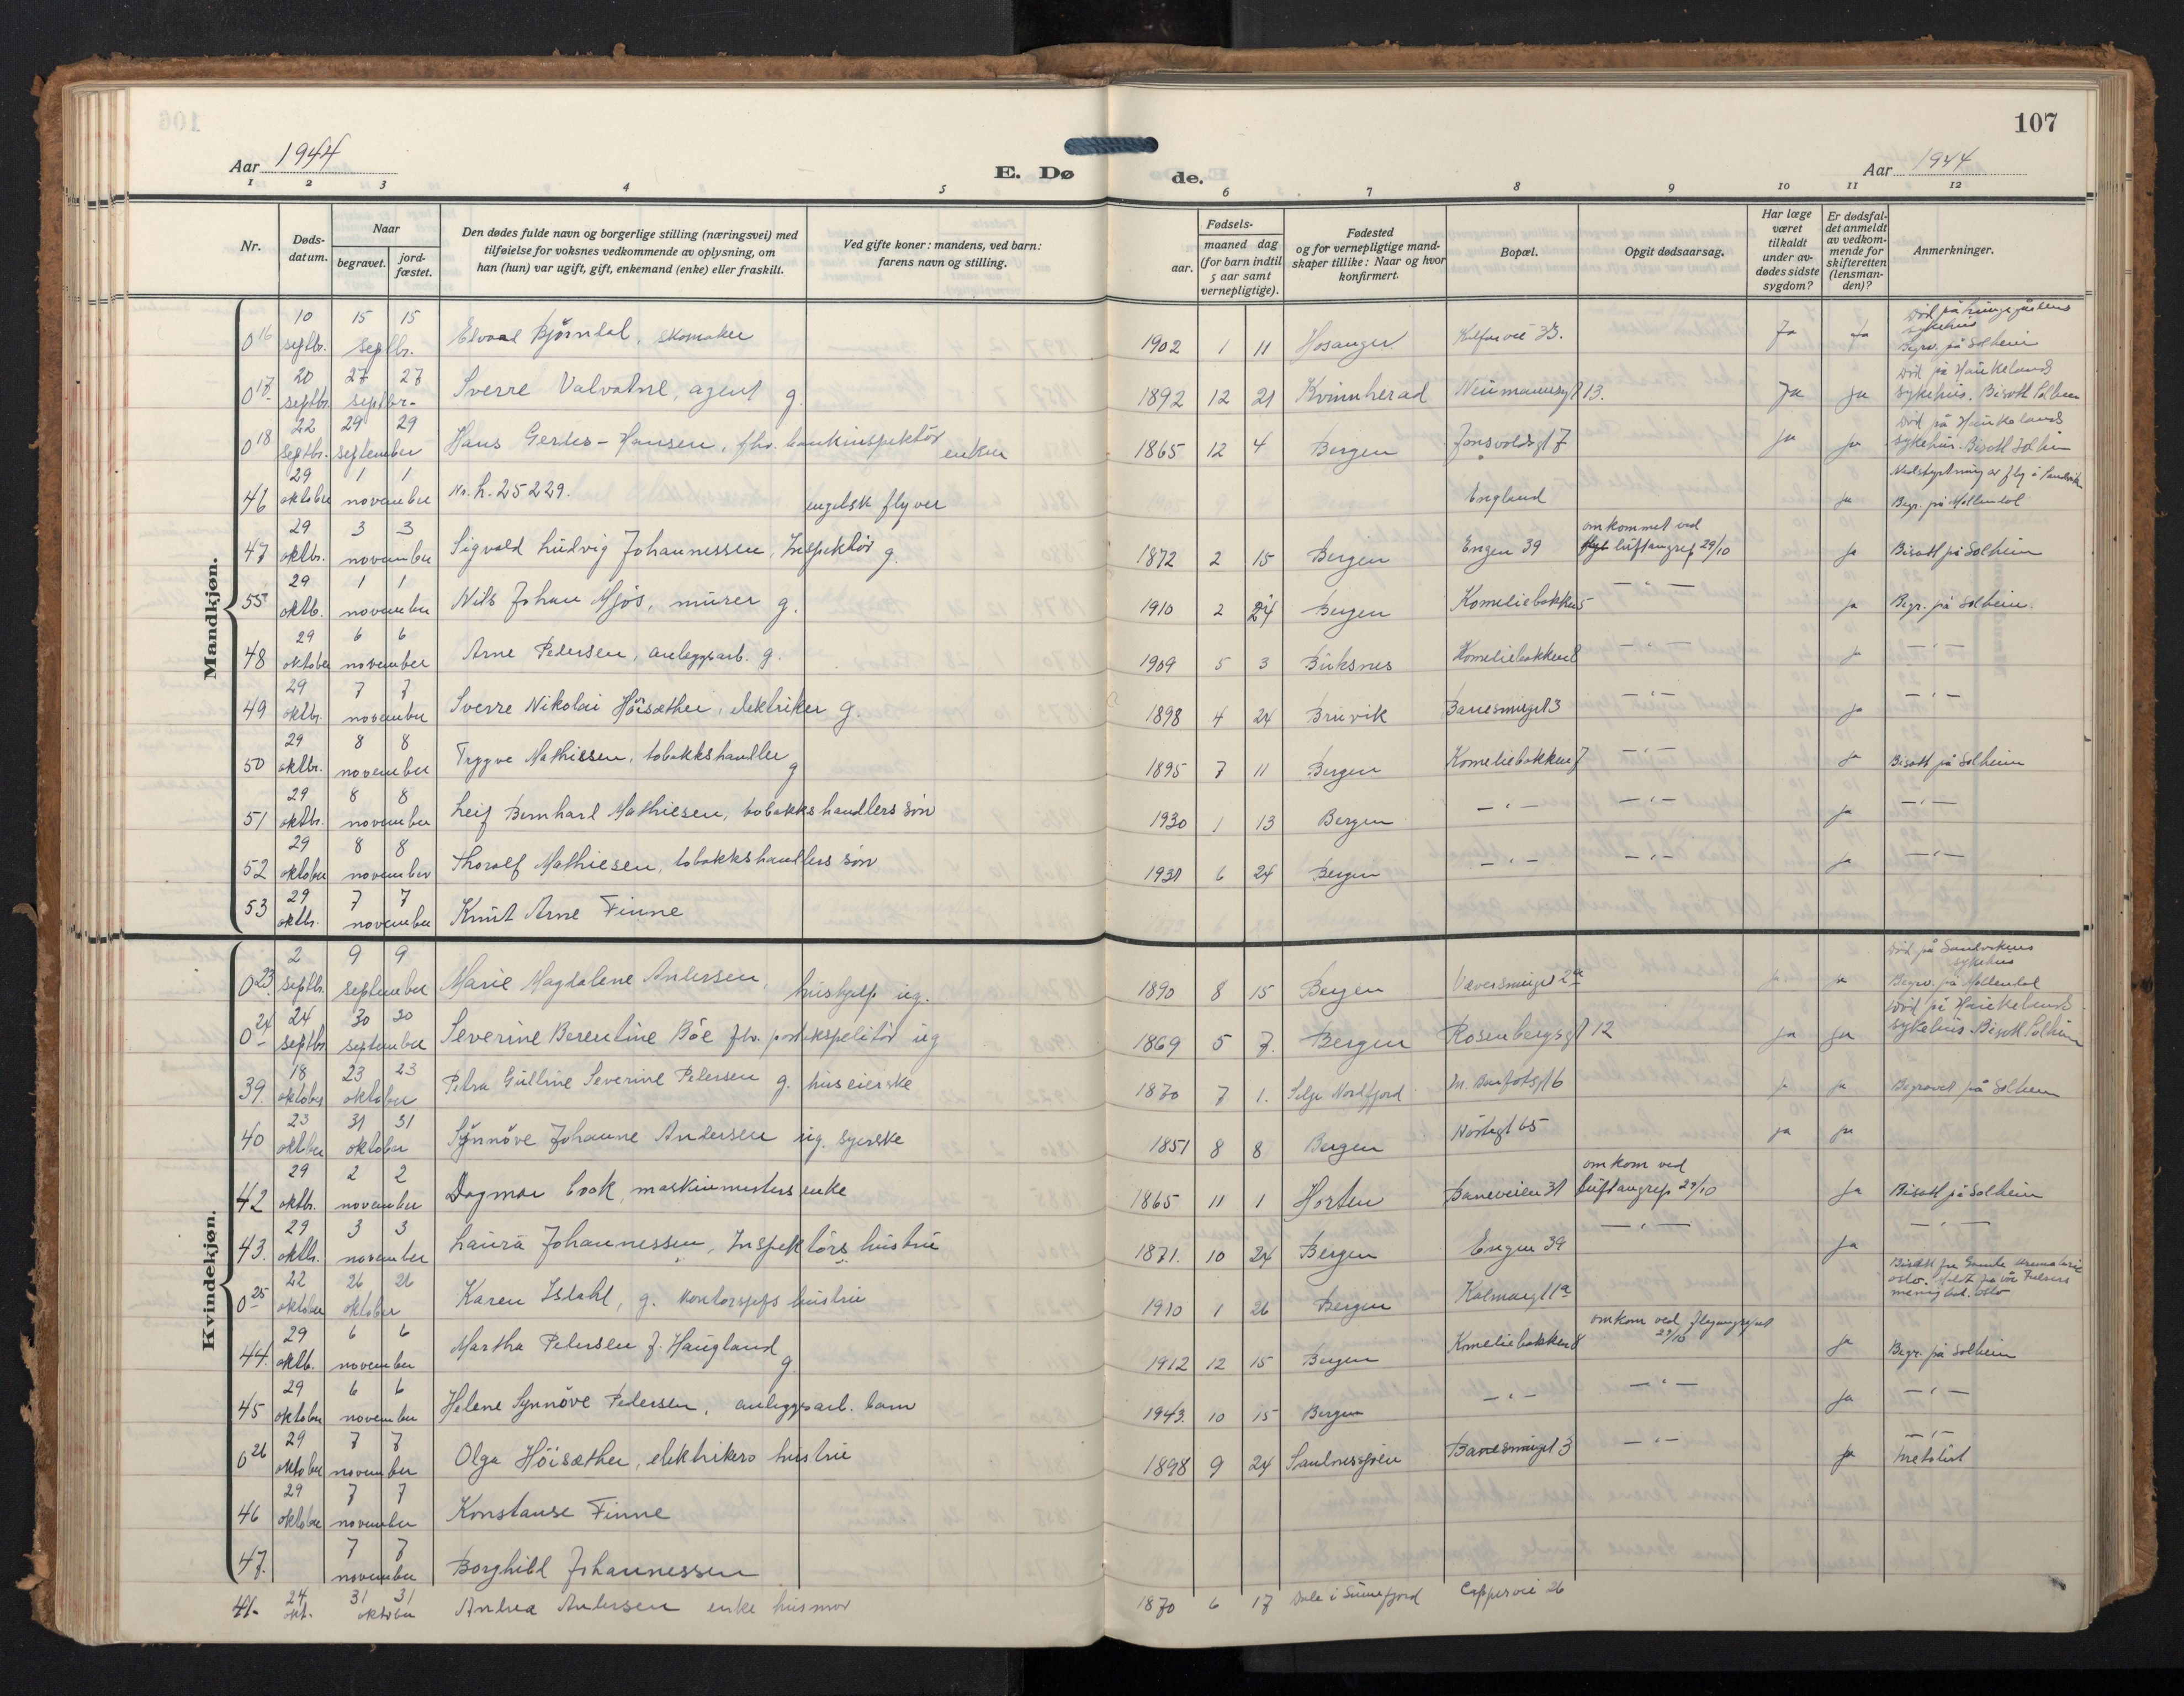 107
Aar 1944
E. Dø
de.
Aar 1944
1 2 3 4 5 6 7 8 9 10 11 12
Nr.
Døds-
datum.
Naar
begravet.
jord-
fæstet.
Den dødes fulde navn og borgerlige stilling (næringsvei) med
tilføielse for voksnes vedkommende av oplysning, om
han (hun) var ugift, gift, enkemand (enke) eller fraskilt.
Ved gifte koner: mandens, ved barn:
farens navn og stilling.
Fødsels-
aar.
maaned dag
(for barn indtil
5 aar samt
vernepligtige).
Fødested
og for vernepligtige mand-
skaper tillike: Naar og hvor
konfirmert.
Bopæl.
Opgit dødsaarsag.
Har læge
været
tilkaldt
under av-
dødes sidste
sygdom?
Er dødsfal-
det anmeldt
av vedkom-
mende for
skifteretten
(lensman-
den)?
Anmerkninger.
Mandkjøn.
016 10 septbr. 15 15 septbr. Bjørndal, skomaker 1902 1 11 Hosanger Kalfarvei Ja Ja sykehus Begrv. på Solheim
017 20 septbr. 27 27 septbr. Sverre Valvatne, agent g. 1892 12 21 Kvinnherad Neumannsgt 13. Ja Ja Død på Haukelands sykehus. Bisatt Solheim
018 22 septbr. 29 29 september Hans Gerdes-Hansen, fhv. bankinspektör enkem 1865 12 4 Bergen Jonsvoldsgt 7 Ja Ja Død på Haukelands sykehus. Bisatt Solheim
46 29 oktober 1 1 november No. L. 25229. engelsk flyver England Ja Nedstyrtning av fly i Sandviken Begr. på Møllendal
47 29 oktbr. 3 3 november Sigvald Ludvig Johannessen, Inspektör g. 1872 2 15 Bergen Engen 39 omkommet ved luftangrep 29/10 Ja Bisatt på Solheim
55 29 oktb. 1 1 november Nils Johan Mjös, murer g. 1910 2 24 Bergen Komeliebakken 5 — " — Ja Begr. på Solheim.
48 29 oktober 6 6 november Arne Pedersen, anleggsarb. g. 1909 5 3 Buksnes Komeliebakken 8 — " — Ja — " —
49 29 oktbr. 7 7 november Sverre Nikolai Höisæther, elektriker g. 1898 4 24 Bruvik Banesmuget 3 — " — Ja — " —
50 29 oktbr. 8 8 november Trygve Mathiesen, tobakkshandler g 1895 7 11 Bergen Komeliebakken 7 — " — Ja Bisatt på Solheim
51 29 oktbr. 8 8 november Leif Bernhard Mathiesen, tobakkshandlers sön 1930 1 13 Bergen — " — — " — Ja — " —
52 29 oktober 8 8 november Thoralf Mathiesen, tobakkshandlers sön 1931 6 24 Bergen — " — — " — Ja — " —
53 29 oktbr. 7 7 november Knut Arne Finne
Kvindekjøn.
023 2 septbr. 9 9 september Marie Magdalene Andersen, hushjelp ug. 1890 8 15 Bergen Væversmuget 2a Ja Ja Død på Sandvikens sykehus Begrv. på Møllendal
024 24 septbr. 30 30 september Severine Berentine Böe fhv. postekspeditör ug 1869 5 7. Bergen Rosenbergsgt 12 Ja Ja Død på Haukelands sykehus. Bisatt Solheim
39. 18 oktober 23 23 oktober Petra Gulline Severine Petersen g. huseierske 1870 7 1. Selje Nordfjord 6 Ja Ja Begravet på Solheim
40 23 oktober 31 31 oktober Synnöve Johanne Andersen ug. syerske 1851 8 8 Bergen 65 Ja Ja
42 29 oktbr. 2 2 november Dagmar Cook, maskinmesters enke 1865 11 1 Horten Baneveien 31 omkom ved luftangrep 29/10 Ja Bisatt på Solheim
43. 29 oktbr. 3 3 november Laura Johannessen, Inspektörs hustru 1871. 10 24 Bergen Engen 39 — " — Ja — " —
025 22 oktober 26 26 oktober Karen Isdahl, g. kontorsjefs hustru 1910 1 26 Bergen Kalmargt 1a Bisatt fra Gamle krematorie Oslo. menighet. Oslo
44. 29 oktb. 6 6 november Martha Pedersen f. Haugland g. 1912 12 15 Bergen Komeliebakken 8 omkom ved flyangrepet 29/10 Ja Begr. på Solheim
45 29 oktober 6 6 november Helene Synnöve Pedersen, anleggsarb. barn 1943. 10 15 Bergen — " — — " — Ja — " —
026 29 oktober 7 7 november Olga Höisæther, elektrikers hustru 1898 9 24 Banesmuget 3 — " — Ja — " — metodist
46 29 oktober 7 7 november Konstanse Finne
47. 7 7 november Borghild Johannessen
41. 24 okt. 31 31 oktober Andrea Andersen enke husmor 1870 6 17 Dale i Sunnfjord 26